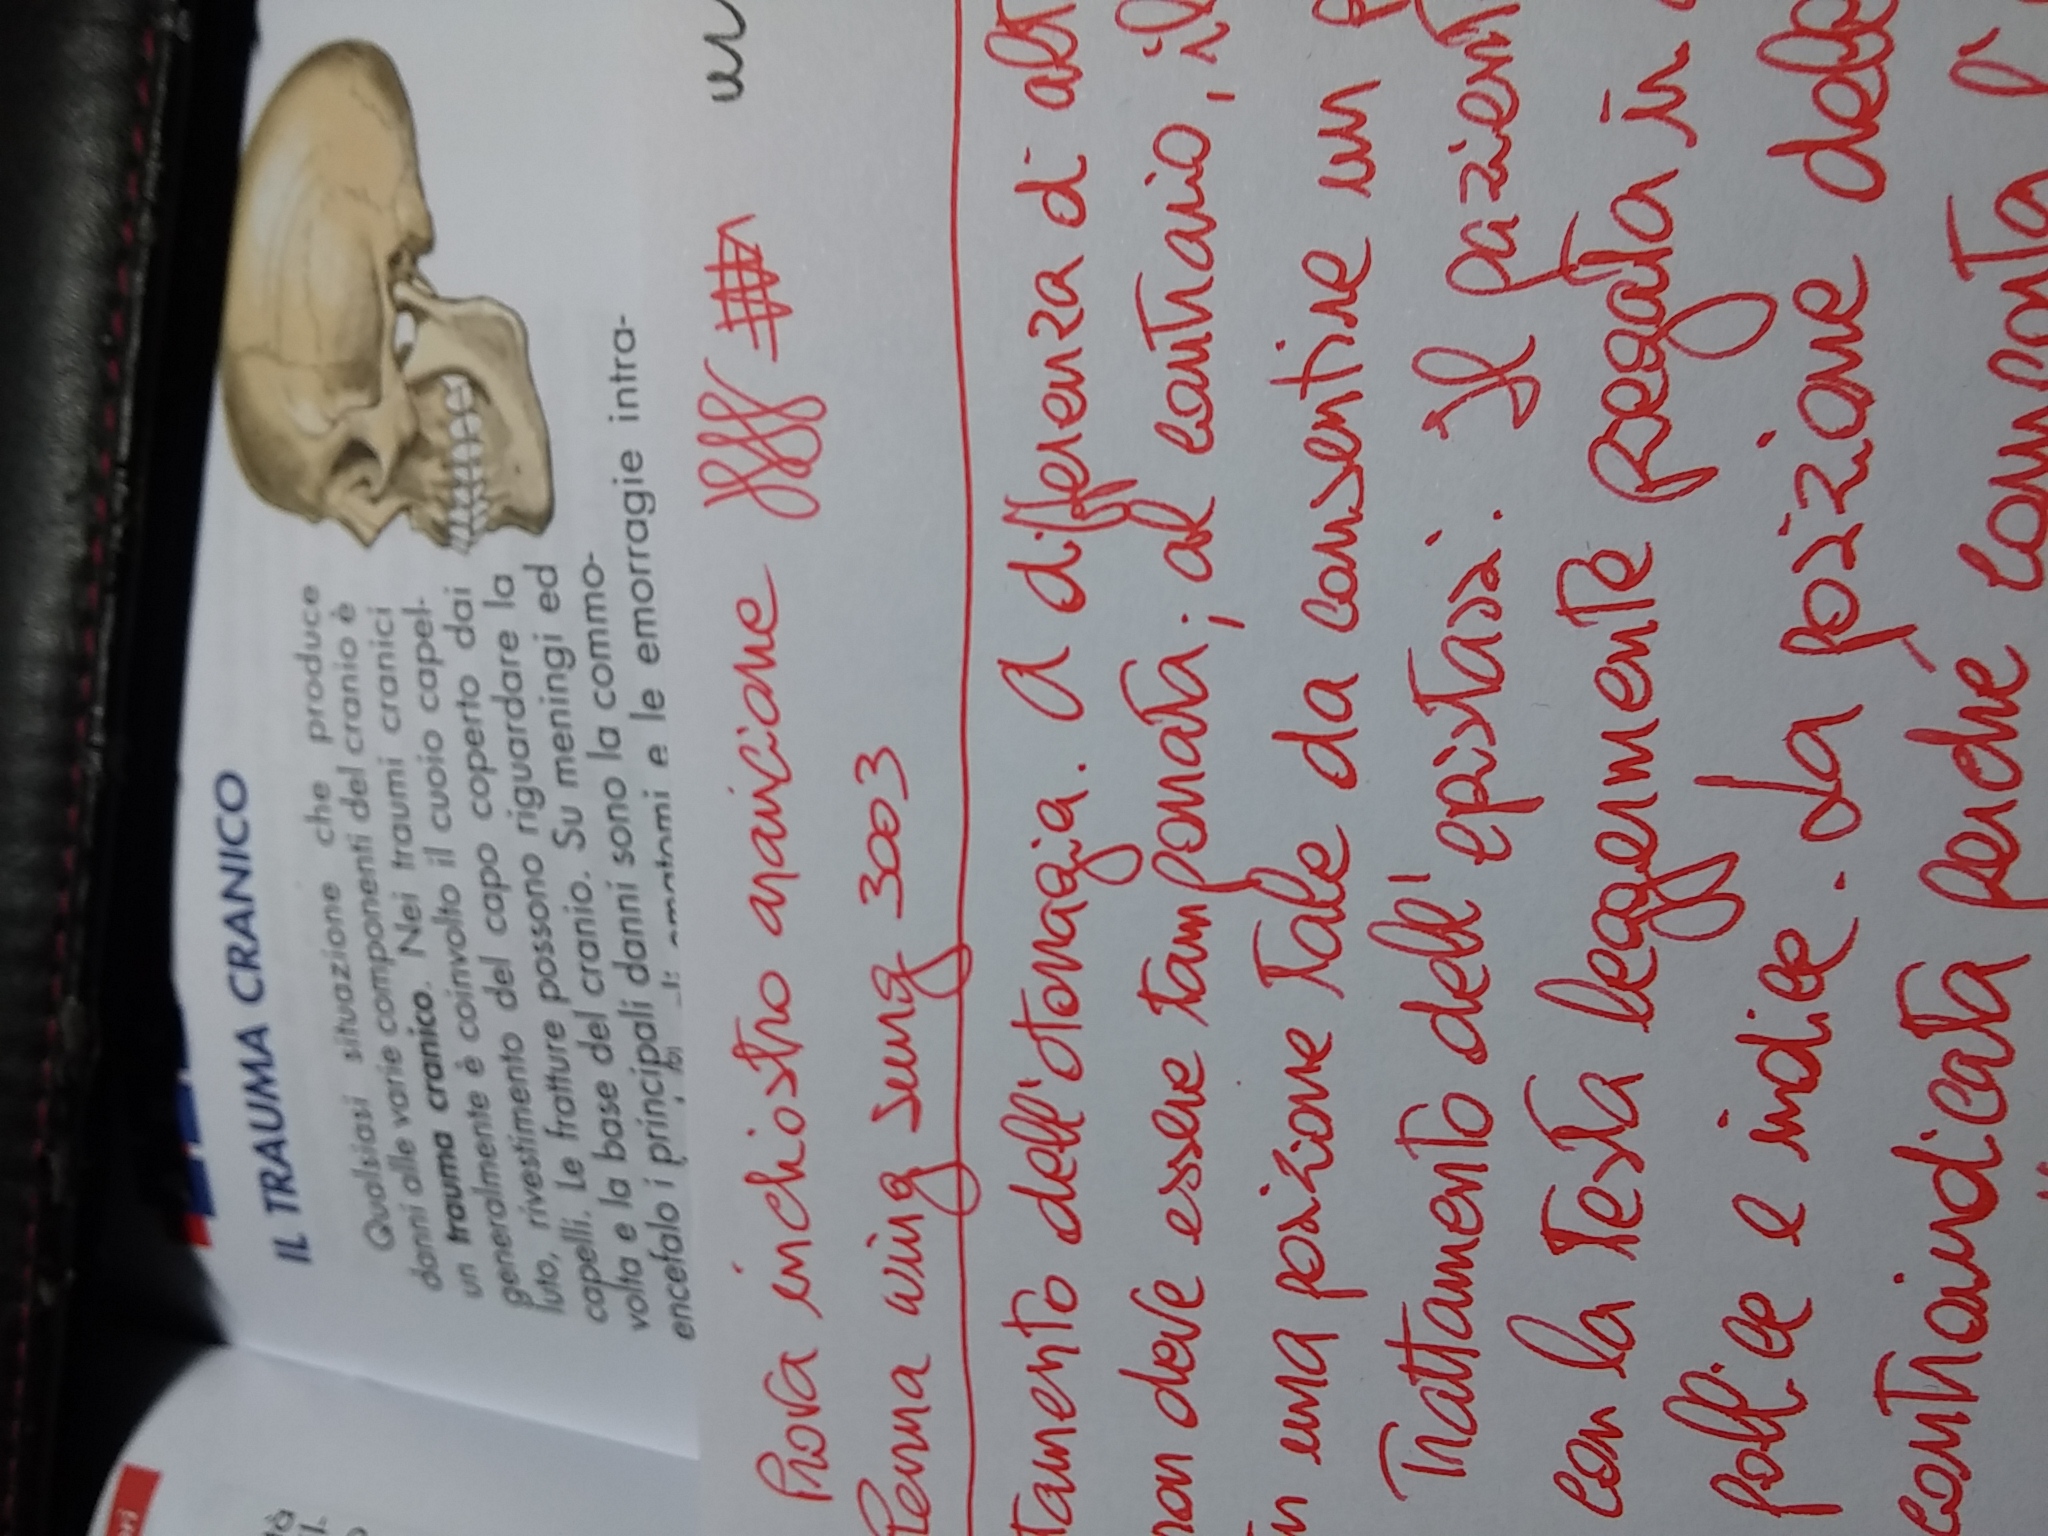 IL TRAUMA CRANICO
Qualsiasi situazione che produce
danni alle varie componenti del cranio è
un trauma cranico. Nei traumi cranici
generalmente è coinvolto il cuoio capel-
luto, rivestimento del capo coperto dai
capelli. Le fratture possono riguardare la
volta e la base del cranio. Su meningi ed
encefalo i principali danni sono la commo-
e le emorragie intra-
Prova inchiostro arancione
Penna wing sung 3003
tamento dell'otorragia. A differenza di alt
non deve essere tamponata; al contrario, il
in una posizione tale da consentire un
Trattamento dell'epistassi. Il pazient
con la testa leggermente piegata in
pollice e indice. La posizione dell
controindicata perché comporta l'